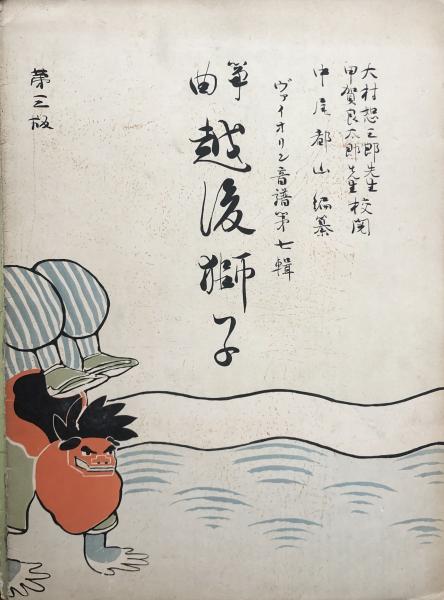 大村恕三郎先生
甲賀良太郎先生校閲
中尾都山編纂
ヴァイオリン音譜第七輯
箏曲
越後獅子
第三版